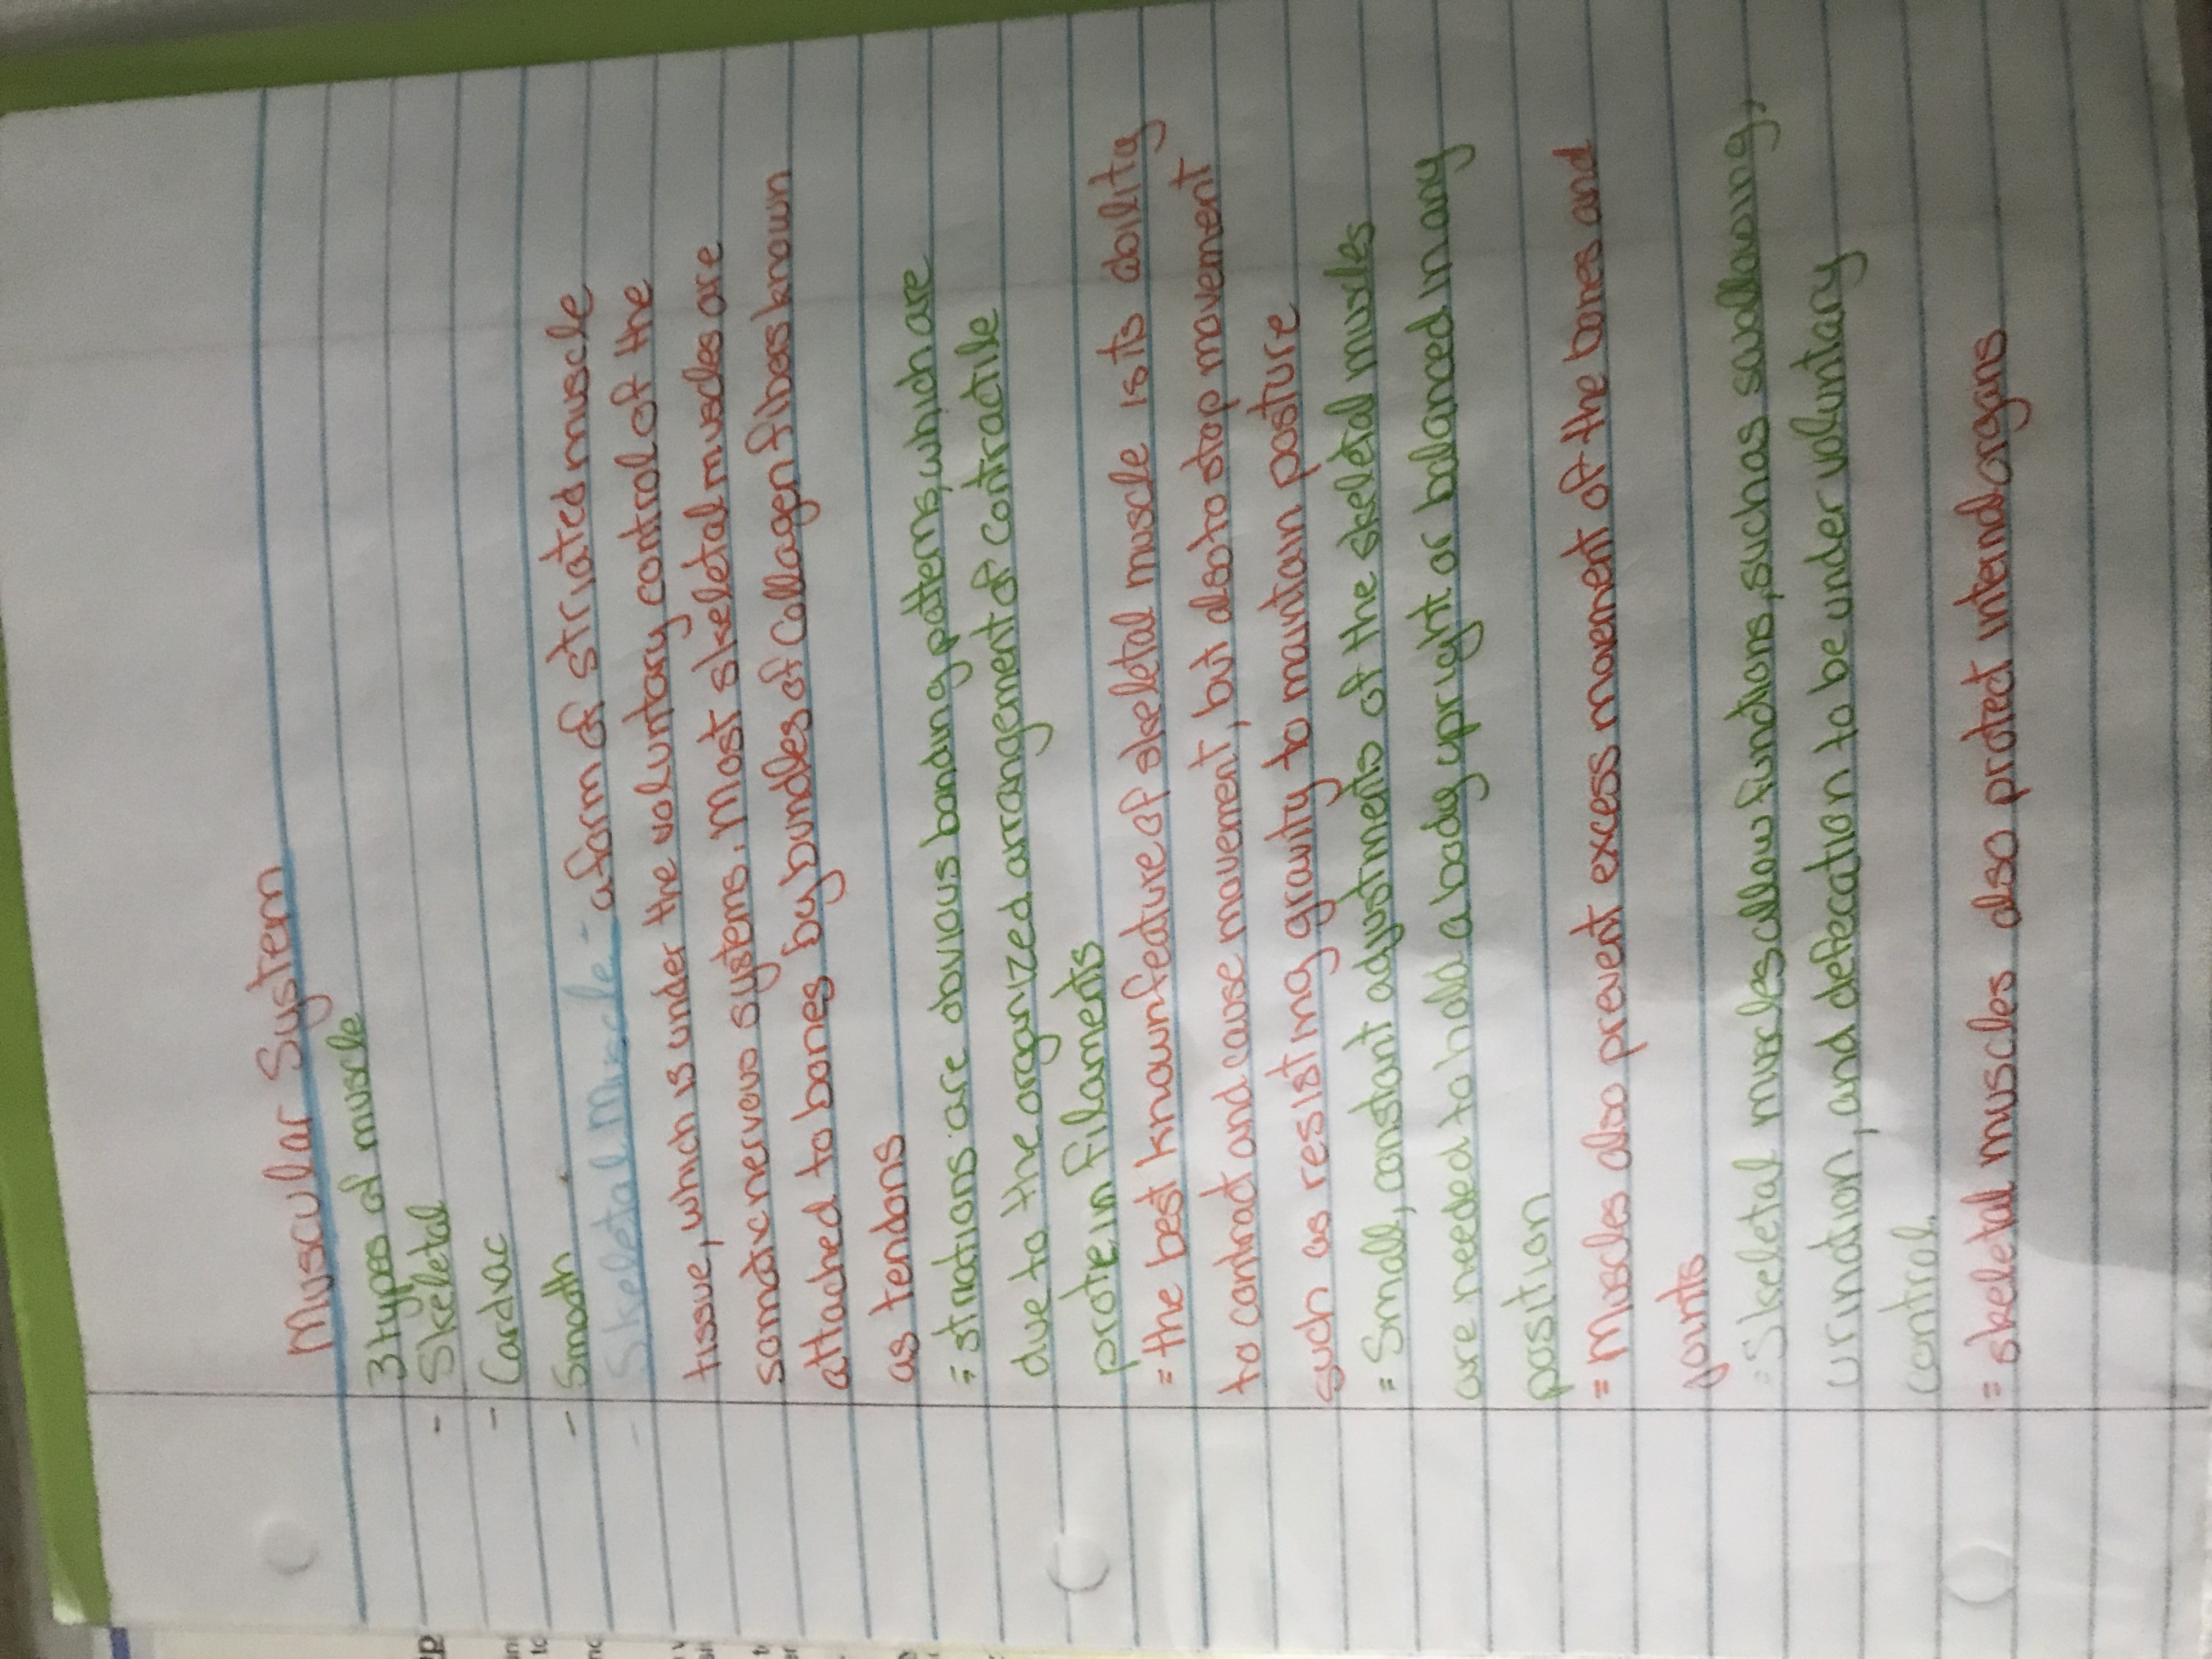 Muscular System
3 types of muscle
- Skeletal
- Cardiac
- Smooth
- Skeletal Muscle - a form of striated muscle
tissue, which is under the voluntary control of the
somatic nervous systems. Most skeletal muscles are
attached to bones by bundles of collagen fibers known
as tendons
= striations are obvious banding patterns, which are
due to the organized arrangement of contractile
protein filaments
= the best known feature of skeletal muscle is its ability
to contract and cause movement, but also to stop movement
such as resisting gravity to maintain posture
= Small, constant adjustments of the skeletal muscles
are needed to hold a body upright or balanced in any
position
= Muscles also prevent excess movement of the bones and
joints
= Skeletal muscles allow functions, such as swallowing,
urination, and defecation to be under voluntary
control.
= skeletal muscles also protect internal organs